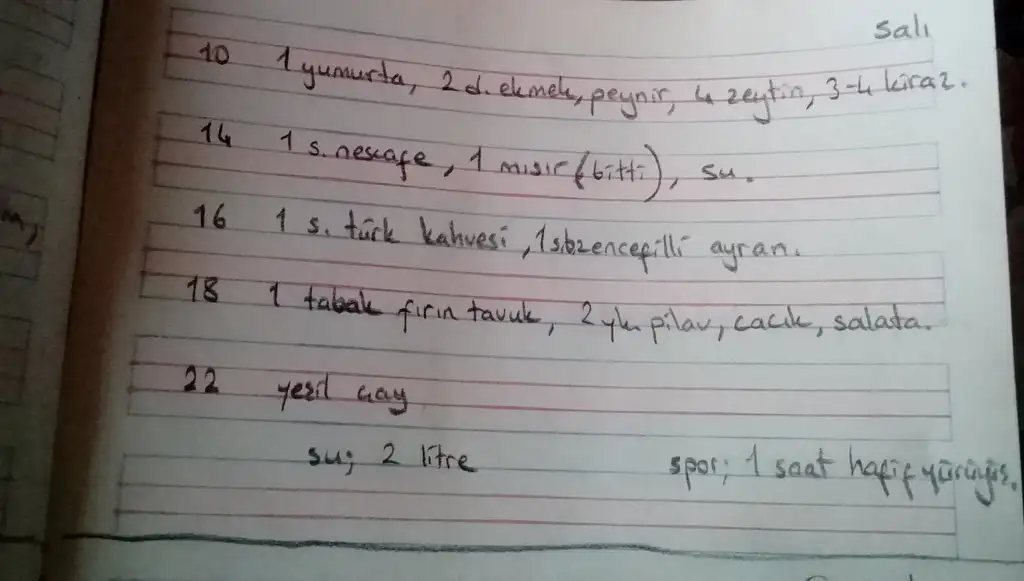 salı
10 1 yumurta, 2 d. ekmek, peynir, 4 zeytin, 3-4 kiraz.
14 1 s. nescafe, 1 mısır (bitti), su.
16 1 s. türk kahvesi, 1 sb zencefilli ayran.
18 1 tabak fırın tavuk, 2 yk. pilav, cacık, salata.
22 yeşil çay
su; 2 litre spor; 1 saat hafif yürüyüş.